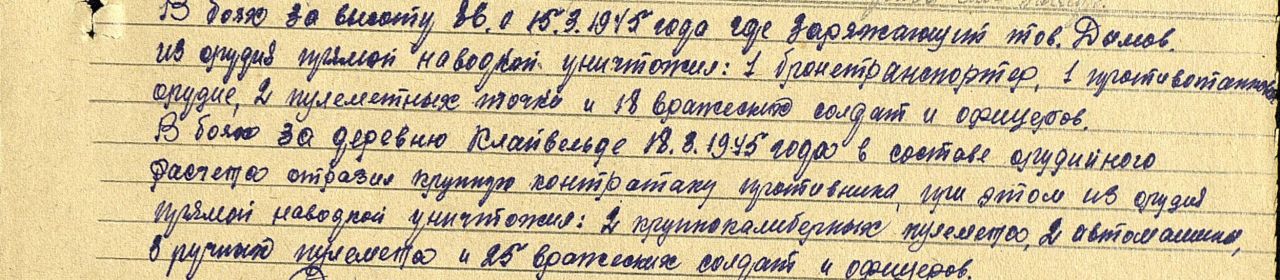 В боях за высоту 86.0 15.3.1945 года где заряжающий тов. Домов
из орудия прямой наводкой уничтожил: 1 бронетранспортер, 1 противотанковое
орудие, 2 пулеметных точки и 18 вражеских солдат и офицеров.
В боях за деревню Клайвельде 18.3.1945 года в составе орудийного
расчета отразил крупную контратаку противника, при этом из орудия
прямой наводкой уничтожил: 2 крупнокалиберных пулемета, 2 автомашины,
3 ручных пулемета и 25 вражеских солдат и офицеров.